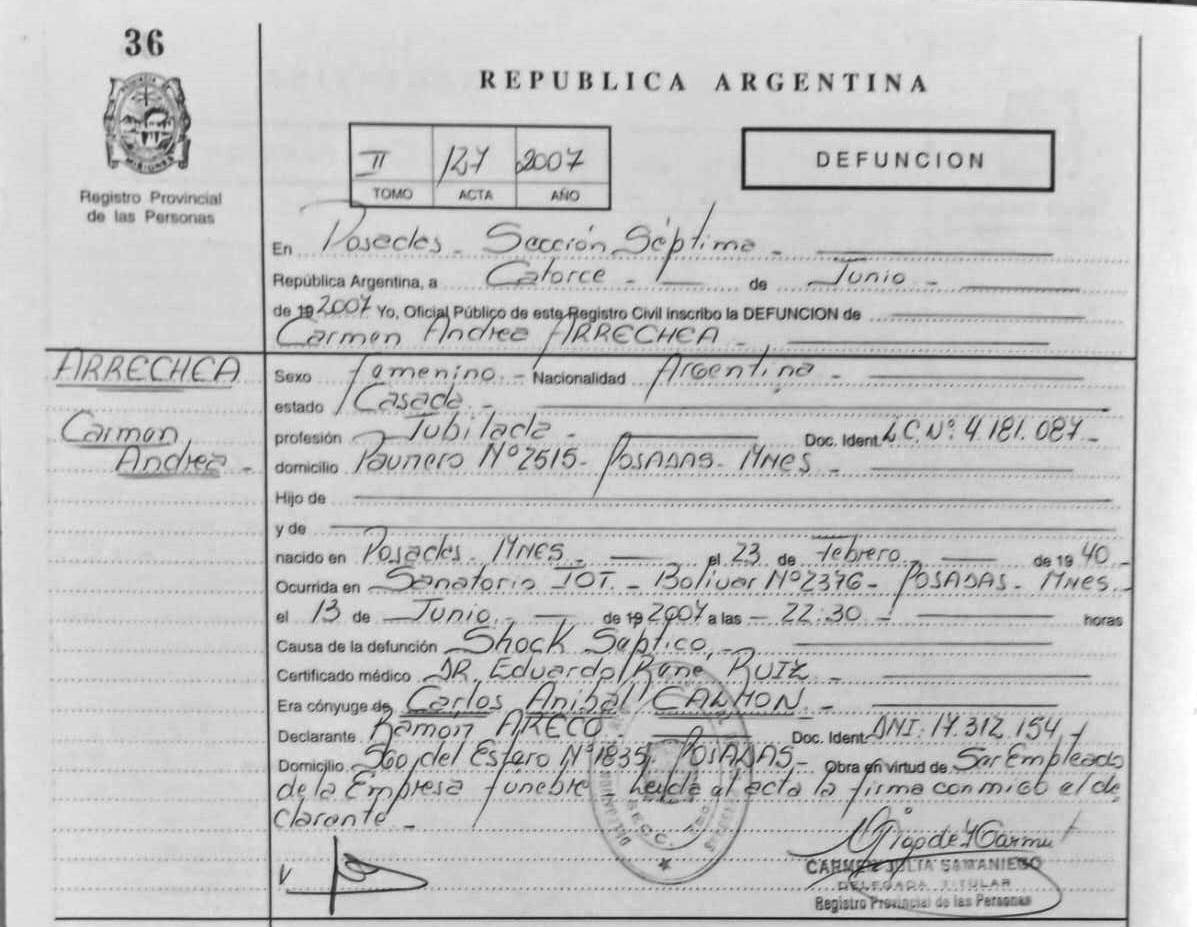 36
REPUBLICA ARGENTINA
MISIONES
Registro Provincial
de las Personas
II 127 2007
TOMO ACTA AÑO
DEFUNCION
En Posadas - Sección Séptima -
República Argentina, a Catorce - de Junio -
de 19 2007 Yo, Oficial Público de este Registro Civil inscribo la DEFUNCION de
Carmen Andrea ARRECHEA -
ARRECHEA
Carmen
Andrea -
Sexo Femenino. - Nacionalidad Argentina -
estado Casada -
profesión Jubilada - Doc. Ident. L.C. Nº 4.181.087 -
domicilio Paunero Nº 2515 - POSADAS - Mnes -
Hijo de
y de
nacido en Posadas - Mnes - el 23 de Febrero - de 19 40 -
Ocurrida en Sanatorio IOT. - Bolivar Nº 2376 - POSADAS - Mnes -
el 13 de Junio - de 19 2007 a las - 22:30 - horas
Causa de la defunción Shock Septico, -
Certificado médico DR. Eduardo Rene RUIZ -
Era cónyuge de Carlos Anibal CALMON -
Declarante Ramon ARECO - Doc. Ident. DNI: 17.312.154 -
Domicilio Sgo. del Estero Nº 1835. POSADAS - Obra en virtud de Ser Empleado
de la Empresa funebre - Leyda al acta la firma conmigo el de
clarante -
R.E.C.C.
CARMEN JULIA SAMANIEGO
DELEGADA TITULAR
Registro Provincial de las Personas